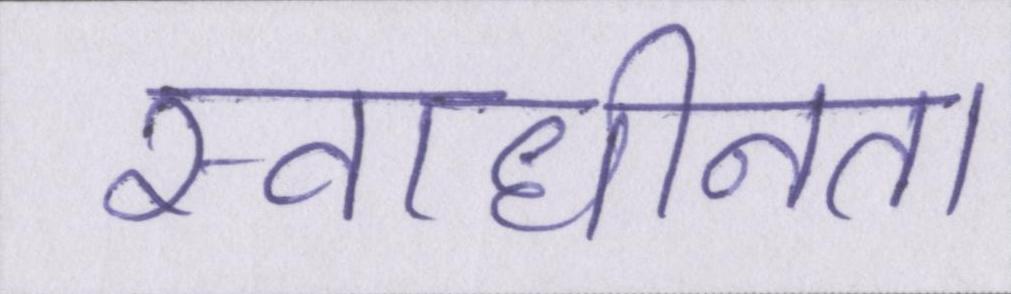 स्वाधीनता